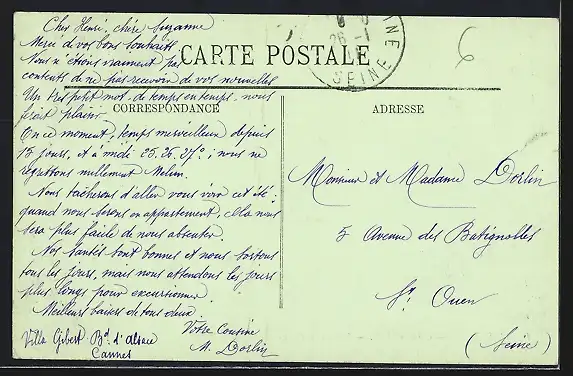 Cher Henri, chère Suzanne
Merci de vos bons souhaits.
Nous n'étions vraiment pas
contents de ne pas recevoir de vos nouvelles
Un très petit mot, de temps en temps, nous
ferait plaisir.
En ce moment, temps merveilleux depuis
15 jours, et à midi 25. 26. 27°; nous ne
regrettons nullement Melun.
Nous tâcherons d'aller vous voir cet été;
quand nous serons en appartement, cela nous
sera plus facile de nous absenter.
Nos santés sont bonnes et nous sortons
tous les jours, mais nous attendons les jours
plus longs pour excursionner.
Meilleurs baisers de tous deux.
Votre Cousine
M. Dorlin
Villa Gibert Bd. d'Alsace
Cannes
CARTE POSTALE
CORRESPONDANCE
ADRESSE
SEINE
Monsieur et Madame Dorlin
5 Avenue des Batignolles
St. Ouen
(Seine)
6